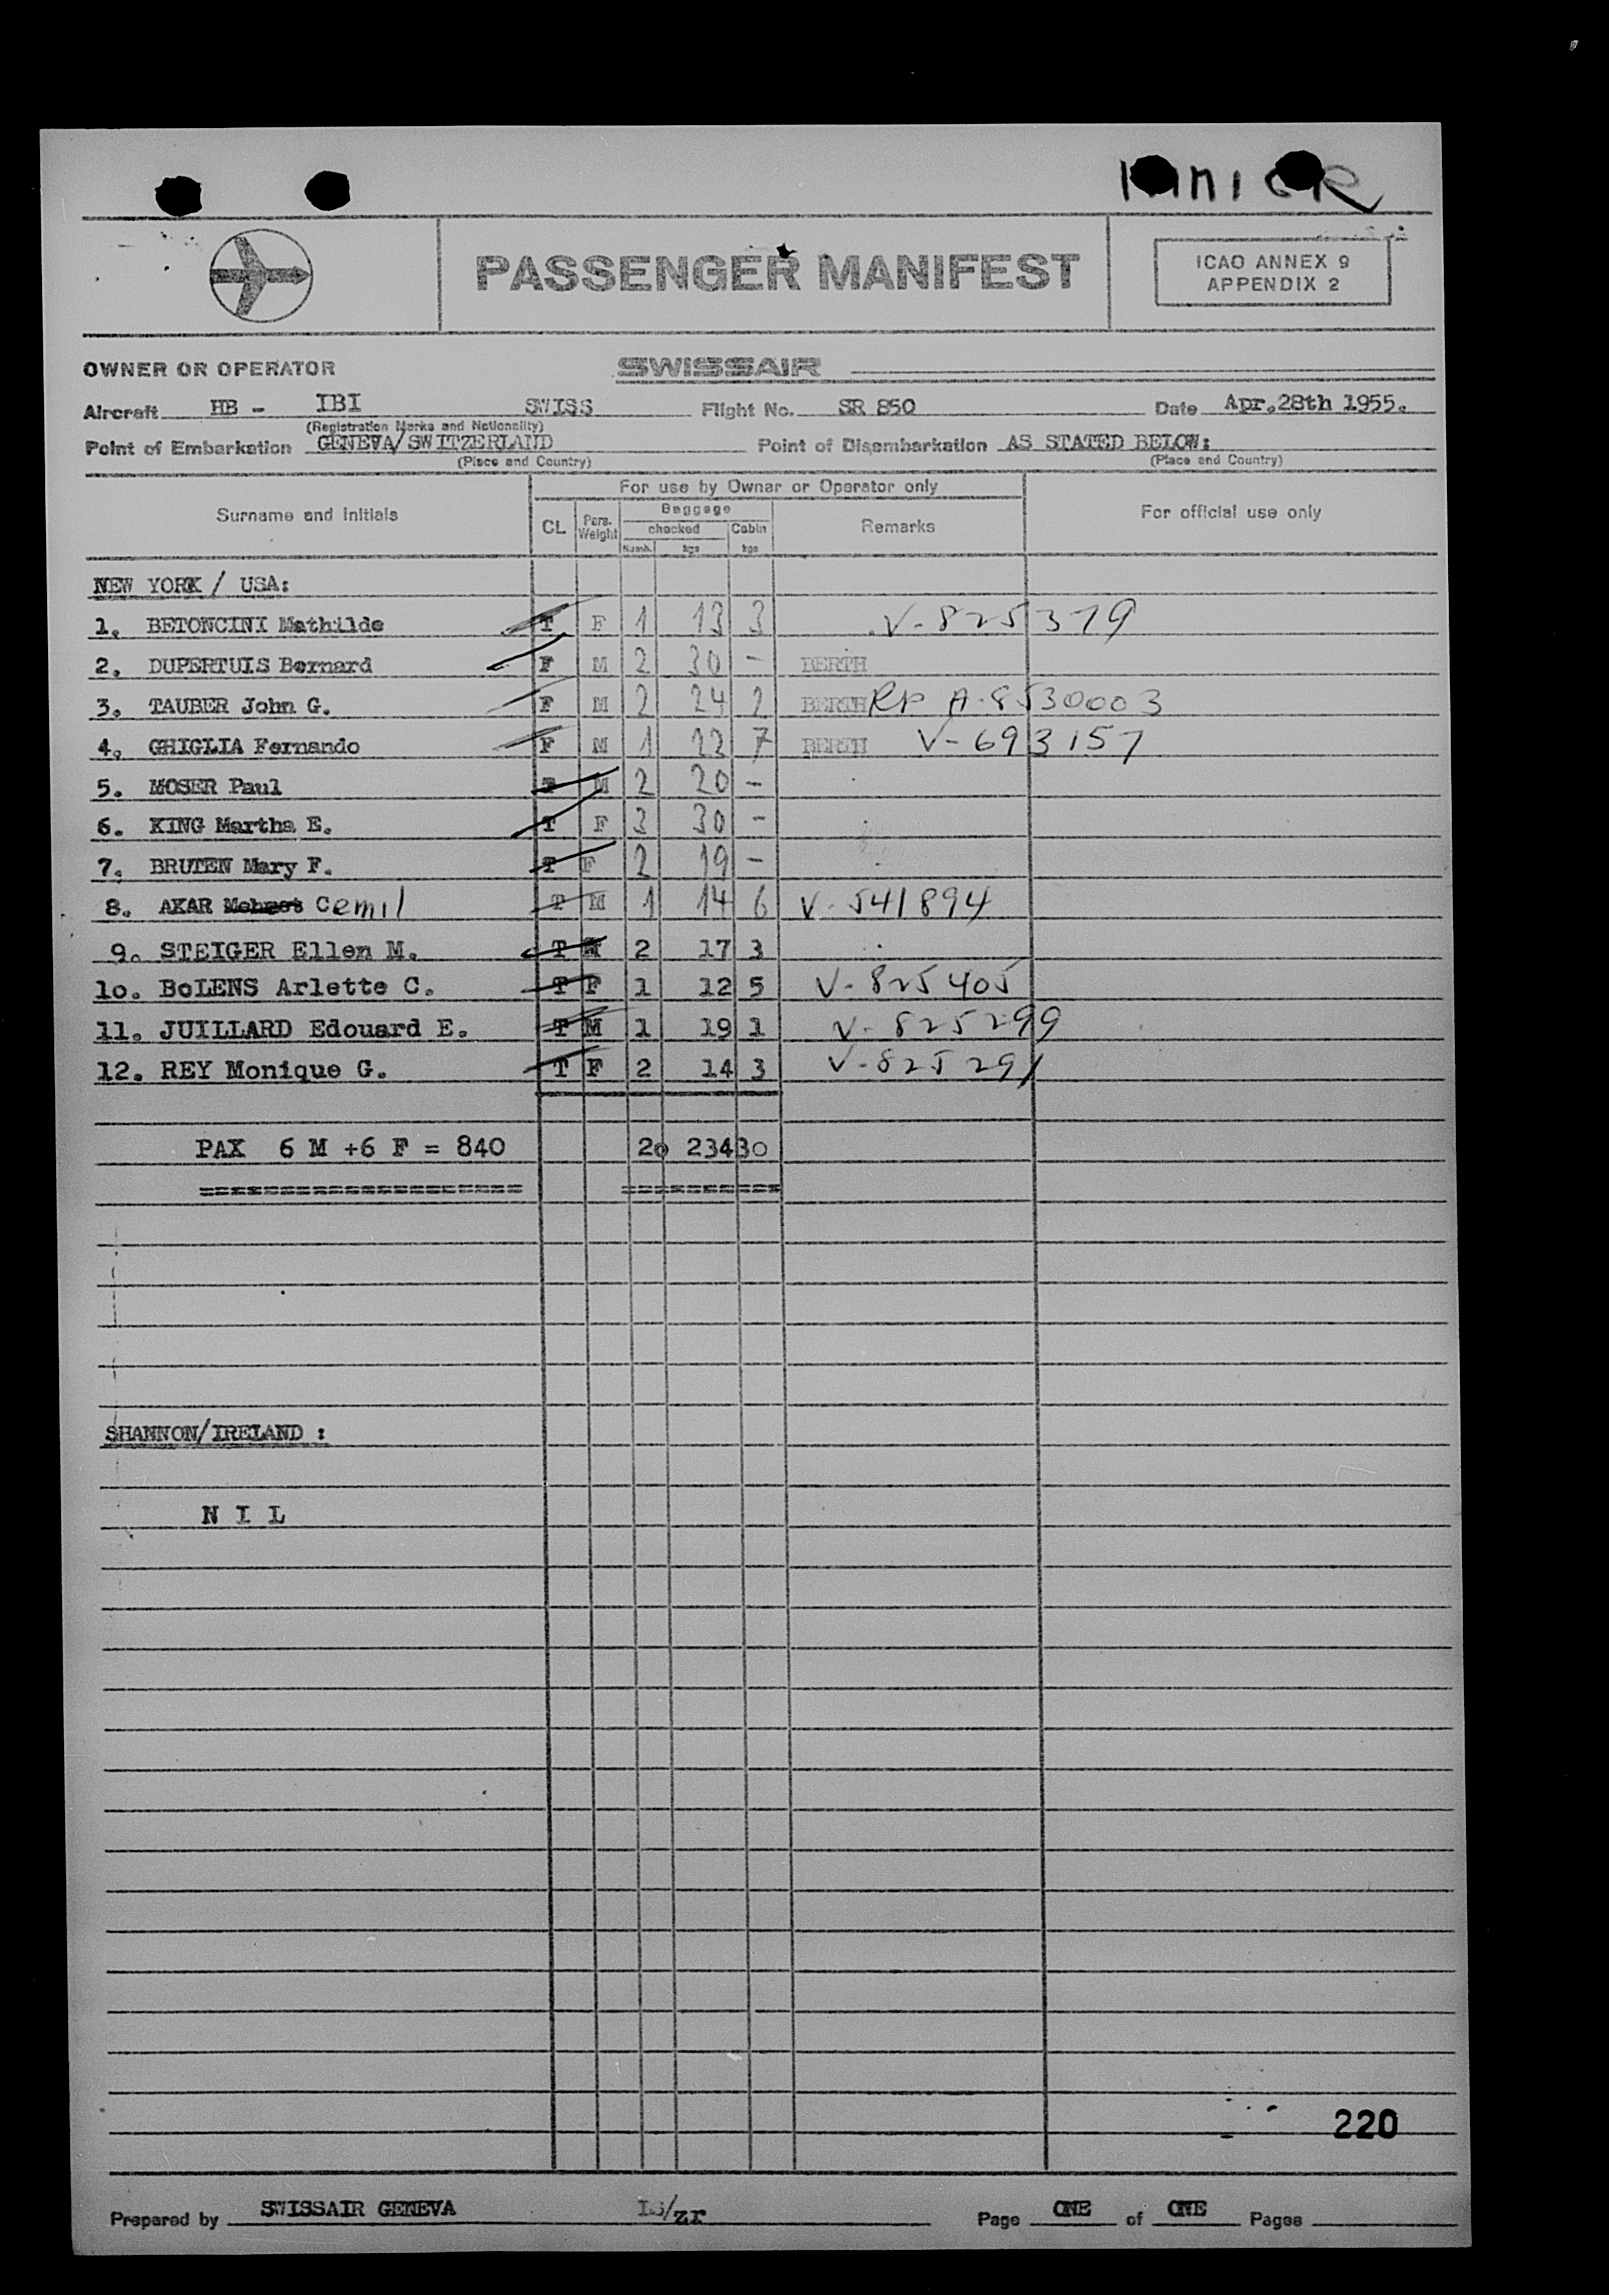 PASSENGER MANIFEST
ICAO ANNEX 9
APPENDIX 2
OWNER OR OPERATOR SWISSAIR
Aircraft HB - IBI SWISS Flight No. SR 850 Date Apr.28th 1955.
(Registration Marks and Nationality)
Point of Embarkation GENEVA/SWITZERLAND Point of Disembarkation AS STATED BELOW:
(Place and Country) (Place and Country)
For use by Owner or Operator only
Surname and initials CL Pers. Weight Baggage Remarks For official use only
checked Cabin
Numb. kgs kgs
NEW YORK / USA:
1. BETONCINI Mathilde T F 1 13 3 V-825379
2. DUPERTUIS Bernard F M 2 30 - BERTH
3. TAUBER John G. F M 2 24 2 BERTH RP A-8530003
4. GHIGLIA Fernando F M 1 22 7 BERTH V-693157
5. MOSER Paul T M 2 20 -
6. KING Martha E. T F 3 30 -
7. BRUTEN Mary F. T F 2 19 -
8. AKAR Mehmet Cemil T M 1 14 6 V-541894
9. STEIGER Ellen M. T 2 17 3
10. BoLENS Arlette C. T F 1 12 5 V-825405
11. JUILLARD Edouard E. T M 1 19 1 V-825299
12. REY Monique G. T F 2 14 3 V-825291
PAX 6 M +6 F = 840 20 234 30
====================== ==========
SHANNON/IRELAND :
N I L
220
Prepared by SWISSAIR GENEVA /zr Page ONE of ONE Pages